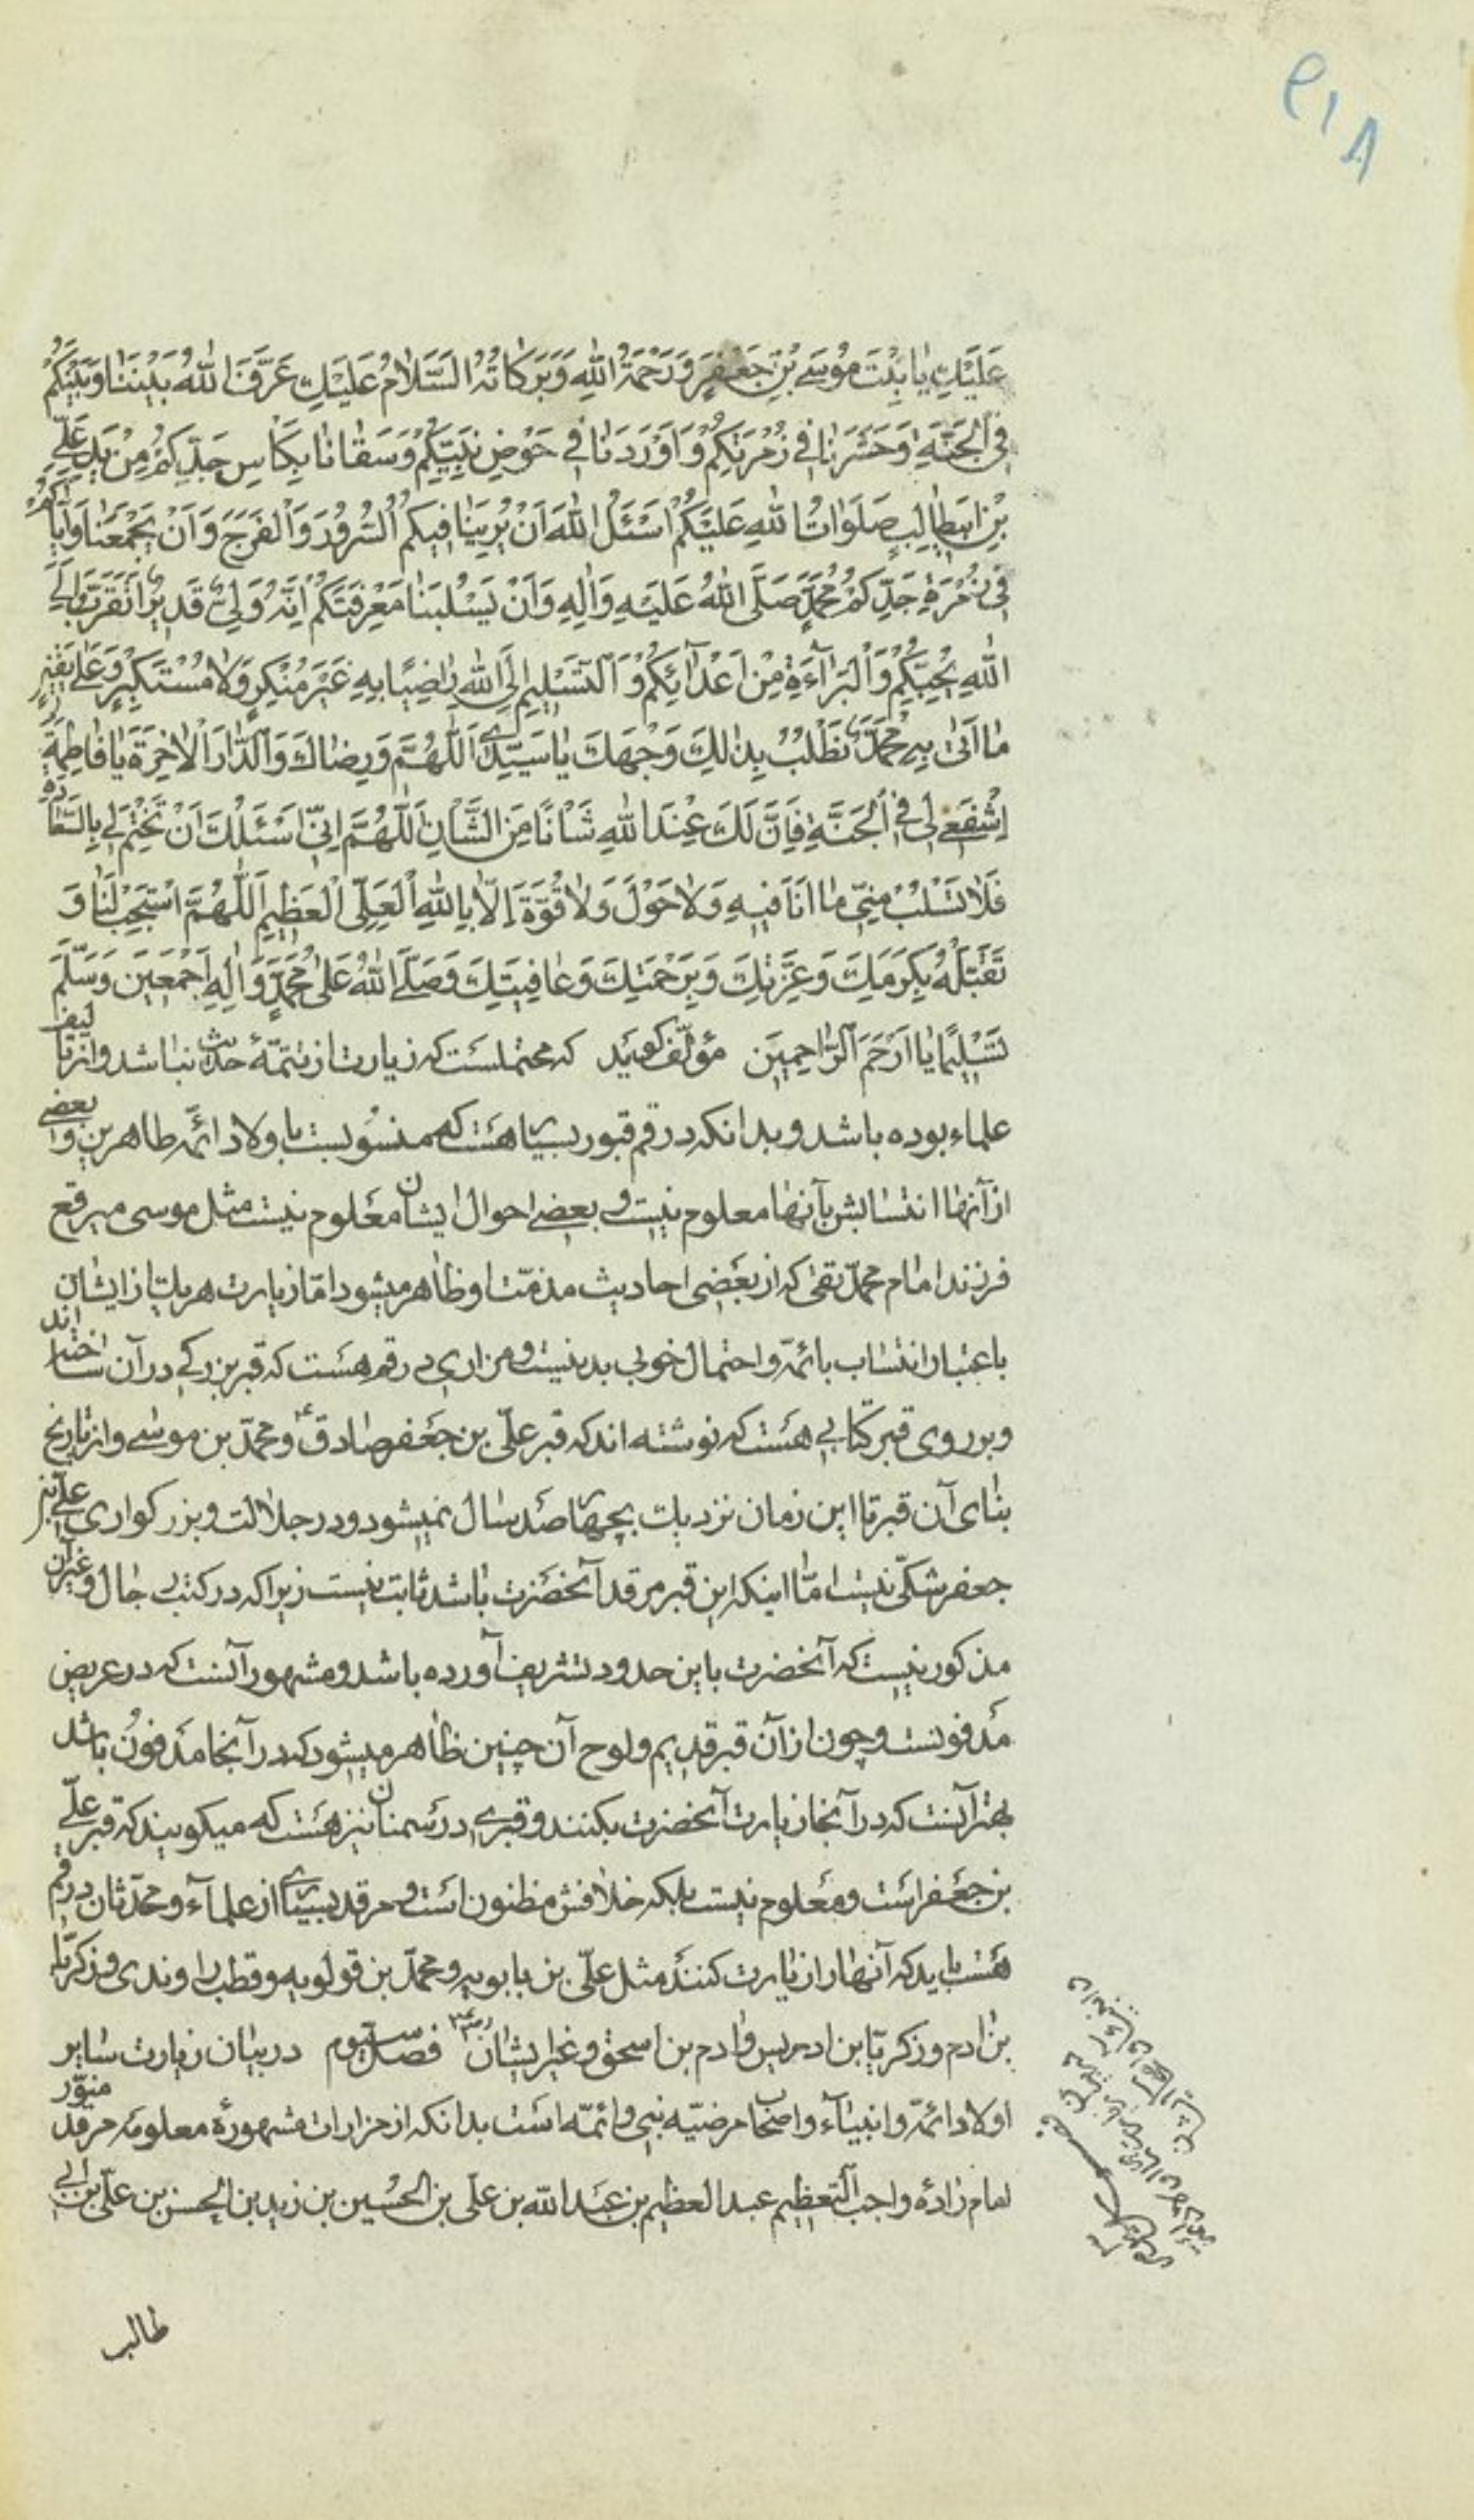 ۹۱۸
عَلَيْكِ يَا بِنْتَ مُوسَى بْنِ جَعْفَرٍ وَرَحْمَةُ اللهِ وَبَرَكَاتُهُ السَّلَامُ عَلَيْكِ عَرَّفَ اللهُ بَيْنَنَا وَبَيْنَكُمْ
فِي الْجَنَّةِ وَحَشَرَنَا فِي زُمْرَتِكُمْ وَاَوْرَدَنَا فِي حَوْضِ نَبِيِّكُمْ وَسَقَانَا بِكَاْسِ جَدِّكُمْ مِنْ يَدِ عَلِيِّ
بْنِ ابيطالِبٍ صَلَوَاتُ اللهِ عَلَيْكُمْ اَسْئَلُ اللهَ اَنْ يُرِيَنَا فِيكُمُ السُّرُورَ وَالْفَرَجَ وَاَنْ يَجْمَعَنَا وَاِيَّاكُمْ
فِي زُمْرَةِ جَدِّكُمْ مُحَمَّدٍ صَلَّى اللهُ عَلَيْهِ وَاٰلِهِ وَاَنْ لَا يَسْلُبَنَا مَعْرِفَتَكُمْ اِنَّهُ وَلِيٌّ قَدِيرٌ اَتَقَرَّبُ اِلَى
اللهِ بِحُبِّكُمْ وَالْبَرَآءَةِ مِنْ اَعْدَآئِكُمْ وَالتَّسْلِيمِ اِلَى اللهِ رَاضِيًا بِهِ غَيْرَ مُنْكِرٍ وَلَا مُسْتَكْبِرٍ وَعَلَى يَقِينِ
مَا اَتَى بِهِ مُحَمَّدٌ نَطْلُبُ بِذٰلِكَ وَجْهَكَ يَا سَيِّدِي اَللّٰهُمَّ وَرِضَاكَ وَالدَّارَ الْاٰخِرَةَ يَا فَاطِمَةُ
اِشْفَعِي لِي فِي الْجَنَّةِ فَاِنَّ لَكِ عِنْدَ اللهِ شَأْنًا مِنَ الشَّأْنِ اَللّٰهُمَّ اِنِّي اَسْئَلُكَ اَنْ تَخْتِمَ لِي بِالسَّعَادَةِ
فَلَا تَسْلُبْ مِنِّي مَا اَنَا فِيهِ وَلَا حَوْلَ وَلَا قُوَّةَ اِلَّا بِاللهِ الْعَلِيِّ الْعَظِيمِ اَللّٰهُمَّ اسْتَجِبْ لَنَا وَ
تَقَبَّلْهُ بِكَرَمِكَ وَعِزَّتِكَ وَبِرَحْمَتِكَ وَعَافِيَتِكَ وَصَلَّى اللهُ عَلَى مُحَمَّدٍ وَاٰلِهِ اَجْمَعِينَ وَسَلَّمَ
تَسْلِيمًا يَا اَرْحَمَ الرَّاحِمِينَ مؤلّف گويد كه محتملست كه زيارت از تتمّۀ حديث نباشد و از تاليف
علماء بوده باشد و بدانكه در قم قبور بسيار هست كه منسوبست باولاد ائمّه طاهرين و بعضى
از آنها انتسابش بآنها معلوم نيست و بعضى احوال ايشان معلوم نيست مثل موسى مبرقع
فرزند امام محمّد تقى كه از بعضى احاديث مذمّت او ظاهر ميشود امّا زيارت هر يك از ايشان
باعتبار انتساب بائمّه و احتمال خوبى بد نيست و مزارى در قم هست كه قبر بزرگى در آن ساخته اند
و بر روى قبر كتابى هست كه نوشته اند كه قبر علّى بن جعفر صادق ع و محمّد بن موسى و از تاريخ
بناى آن قبر تا اين زمان نزديك بچهار صد سال نميشود و در جلالت و بزرگوارى على بن
جعفر شكّى نيست امّا اينكه اين قبر مرقد آنحضرت باشد ثابت نيست زيرا كه در كتب رجال و غير آن
مذكور نيست كه آنحضرت باين حدود تشريف آورده باشد و مشهور آنست كه در عريض
مدفونست و چون از آن قبر قديم و لوح آن چنين ظاهر ميشود كه در آنجا مدفون باشد
بهتر آنست كه در آنجا زيارت آنحضرت بكنند و قبرى در سمنان نيز هست كه ميگويند كه قبر علّى
بن جعفر است و معلوم نيست بلكه خلافش مظنون است و مرقد بسيارى از علمآء و محدّثان در قم
هست بايد كه آنها را زيارت كنند مثل علّى بن بابويه و محمّد بن قولويه و قطب راوندى و زكريّا
بن ادم و زكريّا بن ادريس و ادم بن اسحق و غير ايشان رض فصل سيوم در بيان زيارت ساير
اولاد ائمّه و انبيآء و اصحاب مرضيّه نبى و ائمّه است بدانكه از مزارات مشهورۀ معلومه مرقد منوّر
امام زادۀ واجب التعظيم عبد العظيم بن عبد الله بن على بن الحسين بن زيد بن الحسن بن علّى بن ابى
طالب